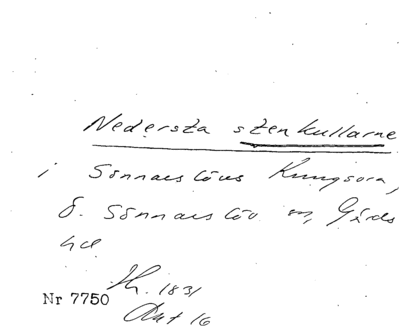 Nedersta stenkullarne
i Sönnarslövs Kungsora,
ö. Sönnarslöv sn, Gärds
hd
Nr 7750 Sk. 1831
Akt 16